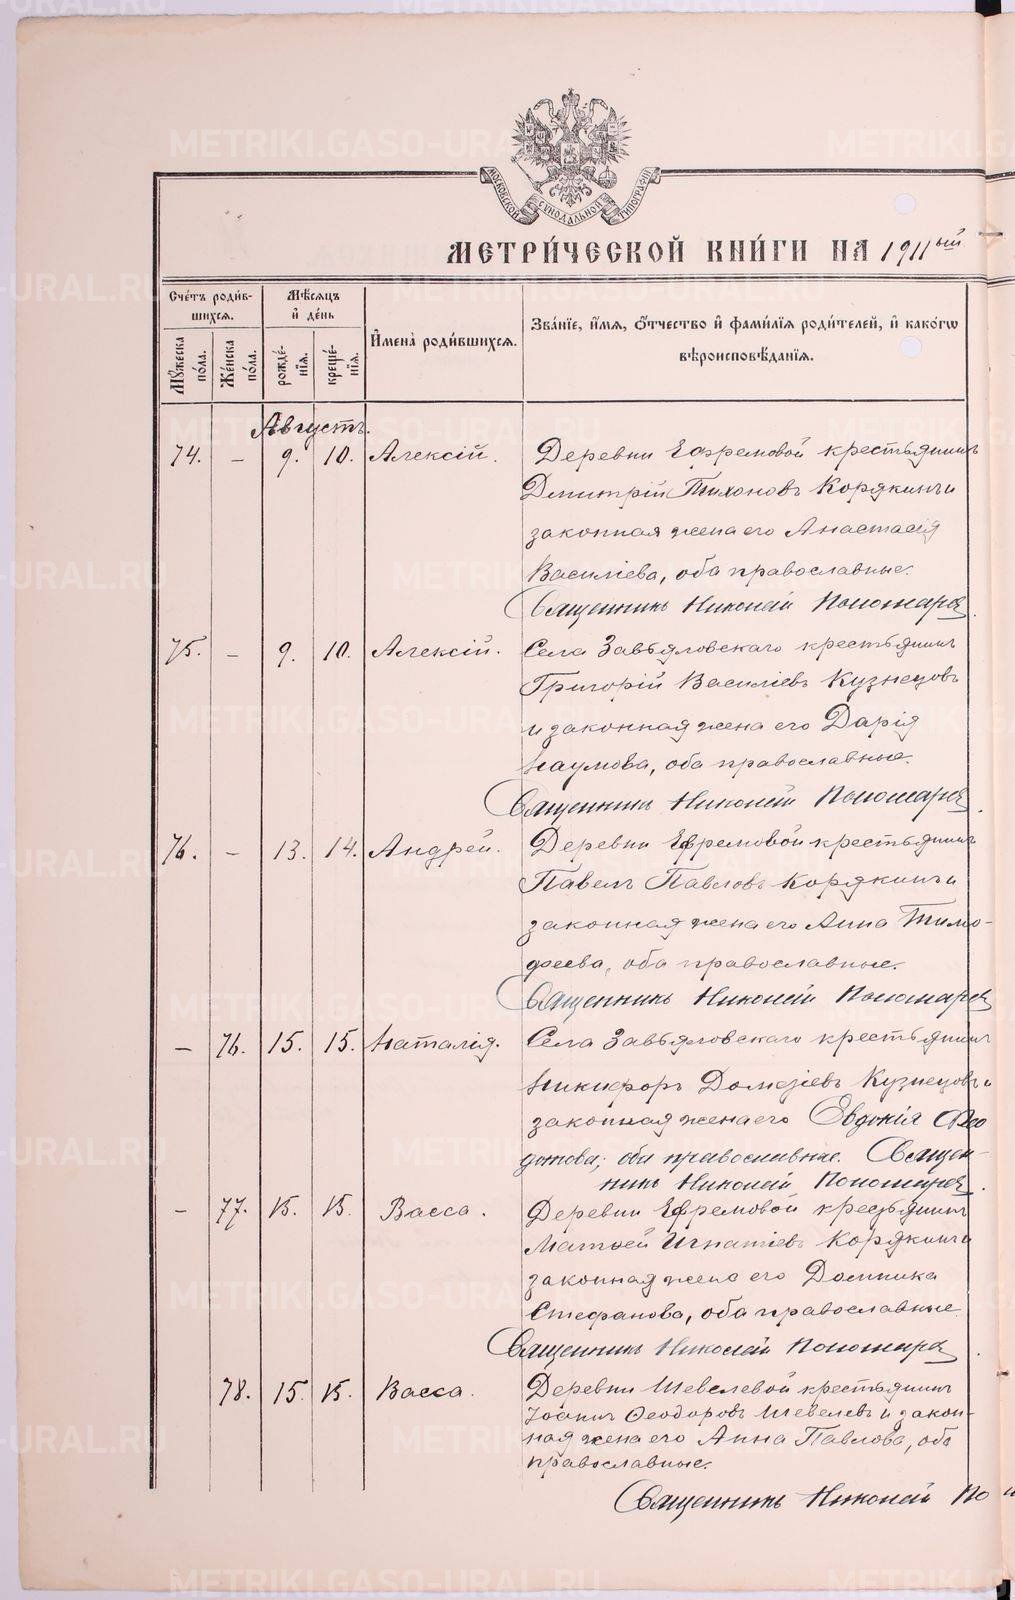 МОСКОВСКОЙ СѴНОДАЛЬНОЙ ТИПОГРАФІИ
МЕТРИ́ЧЕСКОЙ КНИ́ГИ НА 1911ый
Сче́тъ роди́вшихся.
Мѣ́сяцъ и҆ де́нь
И҆мена̀ роди́вшихся.
Зва́нїе, и҆́мѧ, ѻ҆́тчество и҆ фами́лїѧ роди́телей, и҆ како́гѡ
вѣроисповѣ́данїѧ.
Мꙋ́жеска по́ла.
Же́нска по́ла.
рожде́нїѧ.
креще́нїѧ.
Августъ.
74. – 9. 10. Алексій. Деревни Ефремовой крестьянинъ
Дмитрій Тихоновъ Корякинъ и
законная жена его Анастасія
Василіева, оба православные.
Священникъ Николай Пономарев
75. – 9. 10. Алексій. Села Завьяловскаго крестьянинъ
Григорій Василіевъ Кузнецовъ
и законная жена его Дарія
Наумова, оба православные.
Священникъ Николай Пономарев.
76. – 13. 14. Андрей. Деревни Ефремовой крестьянинъ
Павелъ Павловъ Корякинъ и
законная жена его Анна Тимо-
феева, оба православные.
Священникъ Николай Пономарев
– 76. 15. 15. Наталія. Села Завьяловскаго крестьянинъ
Никифоръ Кузнецовъ и
законная жена его Евдокія
оба православные. Священ-
никъ Николай Пономарев.
– 77. 15. 15. Васса. Деревни Ефремовой крестьянинъ
Матѳей Игнатіевъ Корякинъ и
законная жена его Домника
Стефанова, оба православные
Священникъ Николай Пономарев.
78. 15. 15. Васса. Деревни Шевелевой крестьянинъ
Іоаннъ Ѳеодоровъ Шевелевъ и закон-
ная жена его Анна Павлова, оба
православные.
Священникъ Николай По
METRIKI.GASO-URAL.RU